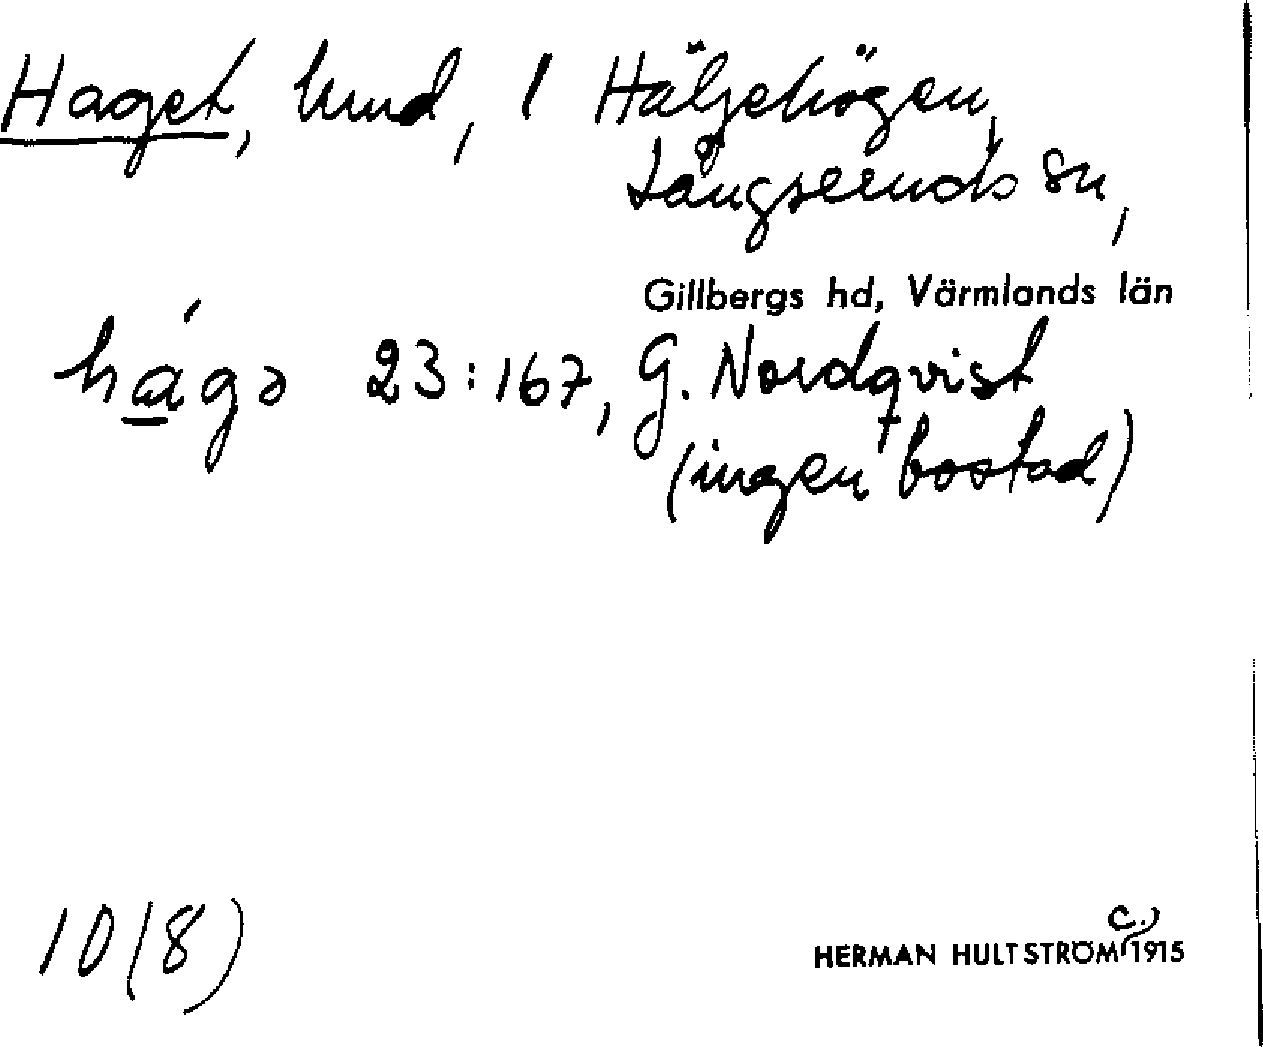 Haget, lmd, 1 Häljehögen,
Långseruds sn,
Gillbergs hd, Värmlands län
hágə 23:167, G. Nordqvist
(ingen bostad)
10(8)
c.)
HERMAN HULTSTRÖM 1915